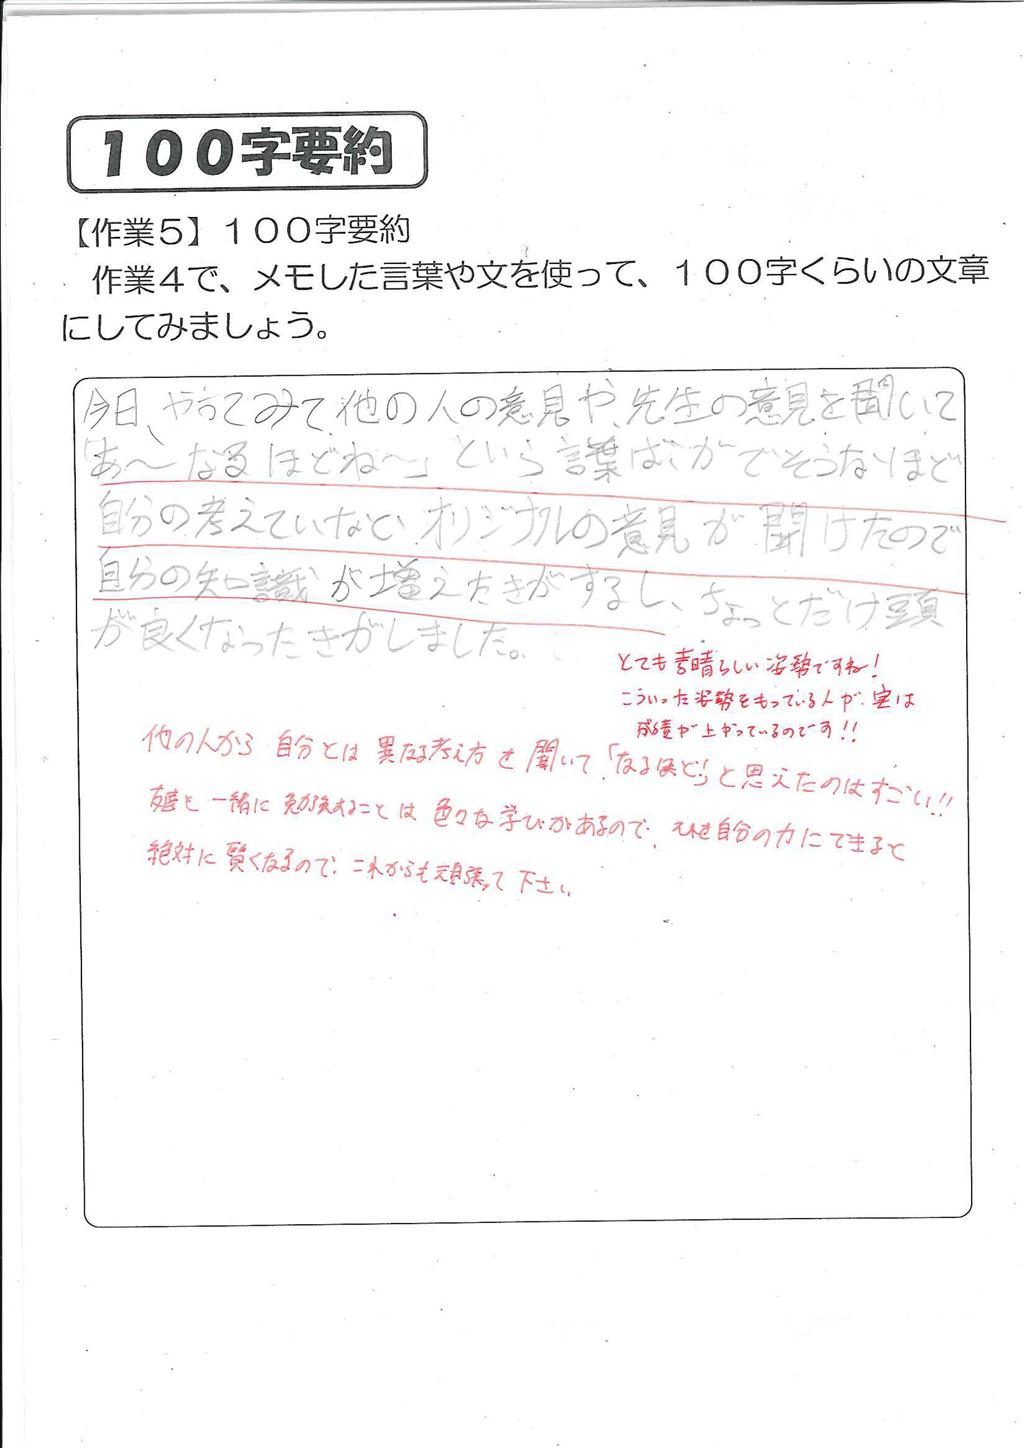 100字要約
【作業5】100字要約
作業4で、メモした言葉や文を使って、100字くらいの文章
にしてみましょう。
今日、やってみて他の人の意見や、先生の意見を聞いて
「あ〜なるほどね〜」という言葉ばかがでそうなほど
自分の考えていなとい オリジナルの意見が聞けたので
自分の知識が増えたきがするし、ちょっとだけ頭
が良くなったきがしました。
とても素晴らしい姿勢ですね!
こういった姿勢をもっている人が、実は
成績が上がっているのです!!
他の人から自分とは異なる考え方を聞いて「なるほど!」と思えたのはすごい!!
友達と一緒に勉強することは色々な学びがあるので、それを自分の力にできると
絶対に賢くなるので、これからも頑張って下さい。